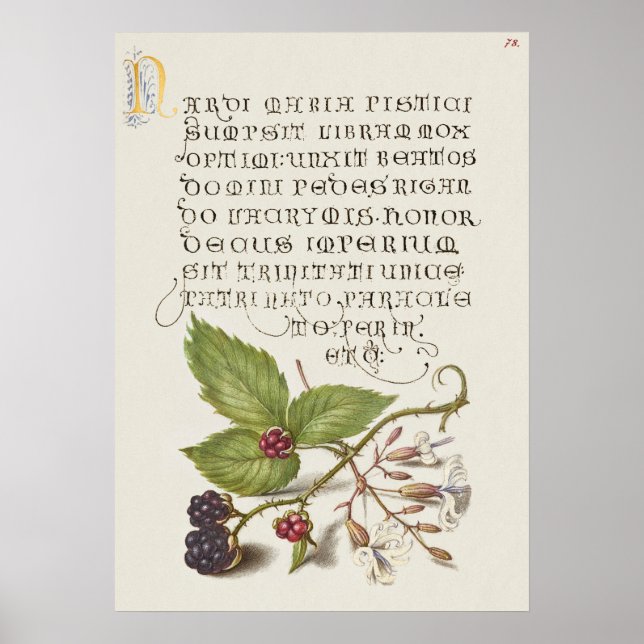 78.
NARDI MARIA PISTICI
SUMPSIT LIBRAM MOX
OPTIMI: UNXIT BEATOS
DOMINI PEDES RIGAN
DO LACRYMIS. HONOR
DECUS IMPERIUM
SIT TRINITATI UNICE:
PATRI NATO, PARACLE
TO, PER IN.
ET